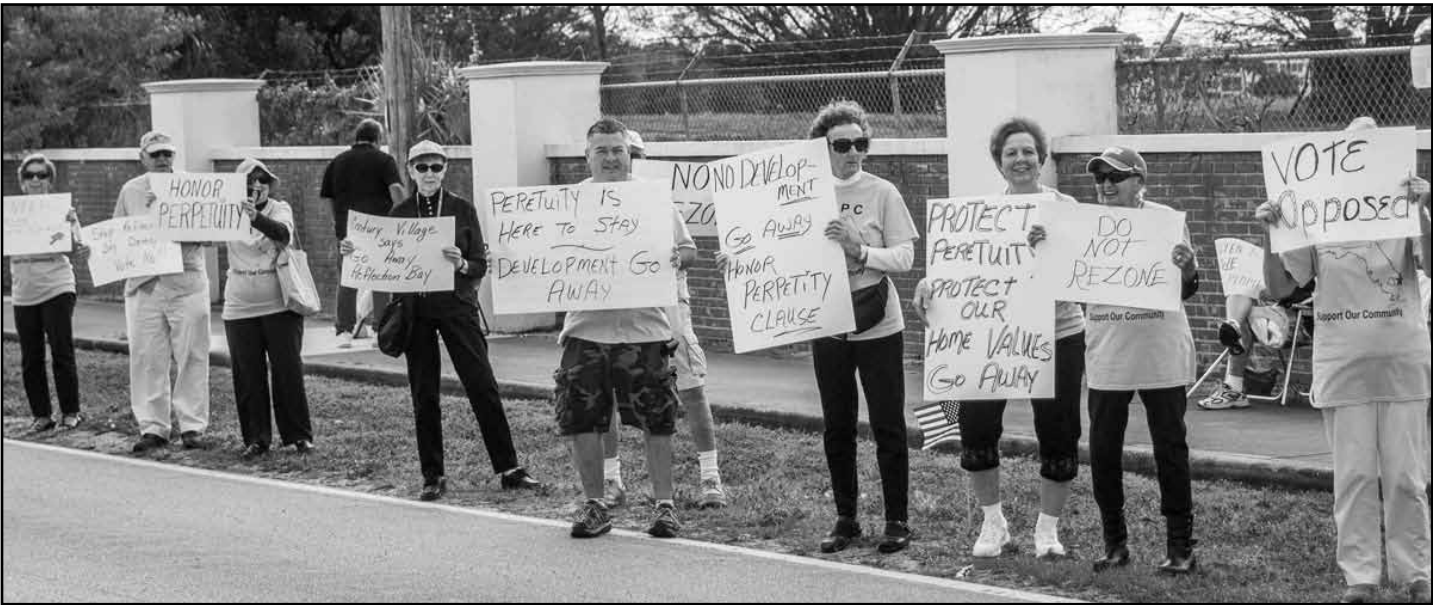 HONOR
PERPETUITY
Vote No!
Support Our Community
Century Village
says
Go Away
Reflection Bay
PERETUITY IS
HERE TO STAY
DEVELOPMENT GO
AWAY
NO
NO DEVELOP-
MENT
GO AWAY
HONOR
PERPETITY
CLAUSE
P C
PROTECT
PERETUIT
PROTECT
OUR
HOME VALUES
GO AWAY
DO
NOT
REZONE
Support Our Community
VOTE
Opposed
Support Our Community